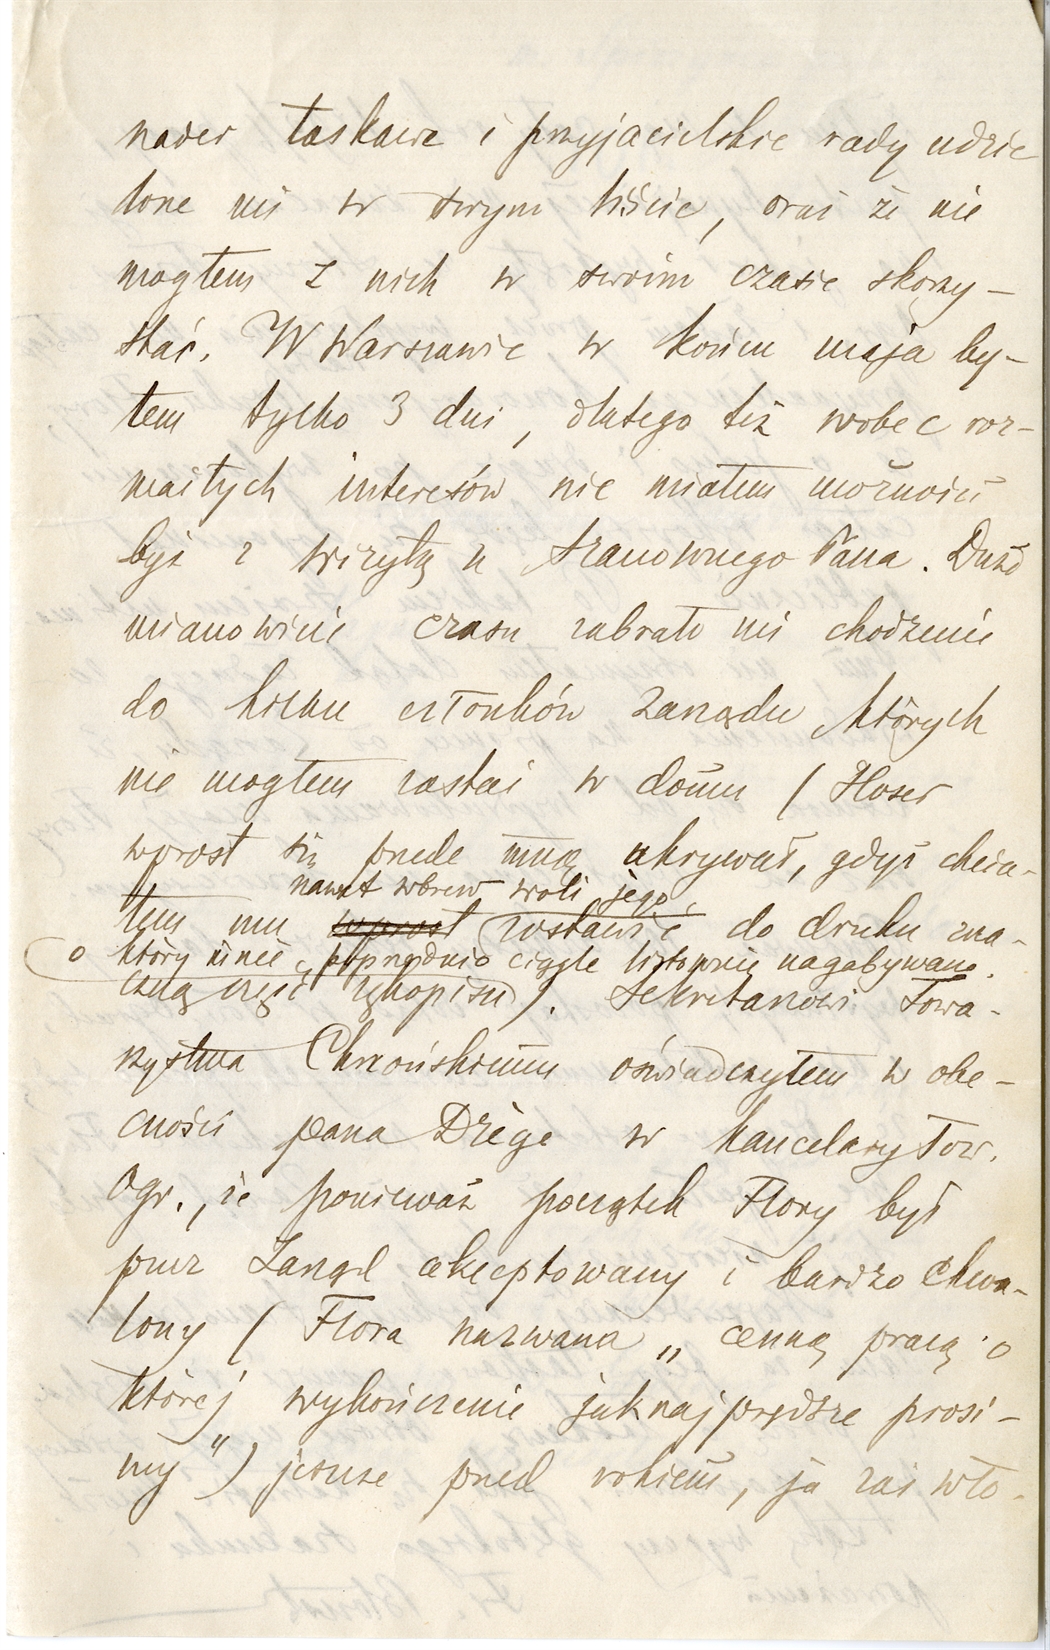 nader łaskawe i przyjacielskie rady udzie
lone mi w swym liście, oraz że nie
mogłem z nich w swoim czasie skorzy-
stać. W Warszawie w końcu maja by-
łem tylko 3 dni, dlatego też wobec roz-
maitych interesów nie miałem możności
być z wizytą u Szanownego Pana. Dużo
mianowicie czasu zabrało mi chodzenie
do kilku członków Zarządu których
nie mogłem zastać w domu (Hoser
wprost się przede mną ukrywał, gdyż chcia-
nawet wbrew woli jego
łem mu wprost zostawić do druku zna-
o który mnie poprzednio ciągle listownie nagabywano.
czną część rękopisu). Sekretarzowi Towa-
rzystwa Chrzońskiemu oświadczyłem w obe-
cności pana Drège w kancelaryi Tow.
Ogr., że ponieważ początek Flory był
przez Zarząd akceptowany i bardzo chwa-
lony (Flora nazwana „cenną pracą o
której wykończenie jaknajprędsze prosi-
my") jeszcze przed rokiem, ja zaś wło-